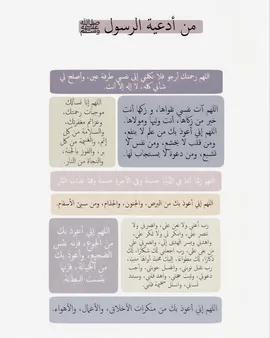 من أدعية الرسول ﷺ
اللهم رحمتك أرجو فلا تكلني إلى نفسي طرفة عين، وأصلح لي
شأني كله، لا إله إلا أنت.
اللهم إنا نسألك
موجبات رحمتك،
وعزائم مغفرتك،
والسلامة من كل
إثم، والغنيمة من كل
بر، والفوز بالجنة،
والنجاة من النار.
اللهم آت نفسي تقواها، و زكها أنت
خير من زكاها، أنت وليها ومولاها.
اللهم إني أعوذ بك من علم لا ينفع،
ومن قلب لا يخشع، ومن نفس لا
تشبع، ومن دعوة لا يستجاب لها.
اللهم إني أعوذ بك من البرص، والجنون، والجذام، ومن سيئ الأسقام.
رب أعني ولا تعن علي، وانصرني ولا
تنصر علي، وامكر لي ولا تمكر علي،
واهدني ويسر الهدى إلي، وانصرني على
من بغى علي، رب اجعلني لك شكارا، لك
ذكارا، لك
رب تقبل توبتي، واغسل حوبتي، وأجب
دعوتي، وثبت حجتي، واهد قلبي، وسدد
لساني، واسلل سخيمة قلبي.
اللهم إني أعوذ بك
من الجوع، فإنه بئس
الضجيع، وأعوذ بك
من الخيانة، فإنها
بئست البطانة.
اللهم إني أعوذ بك من منكرات الأخلاق، والأعمال، والأهواء.